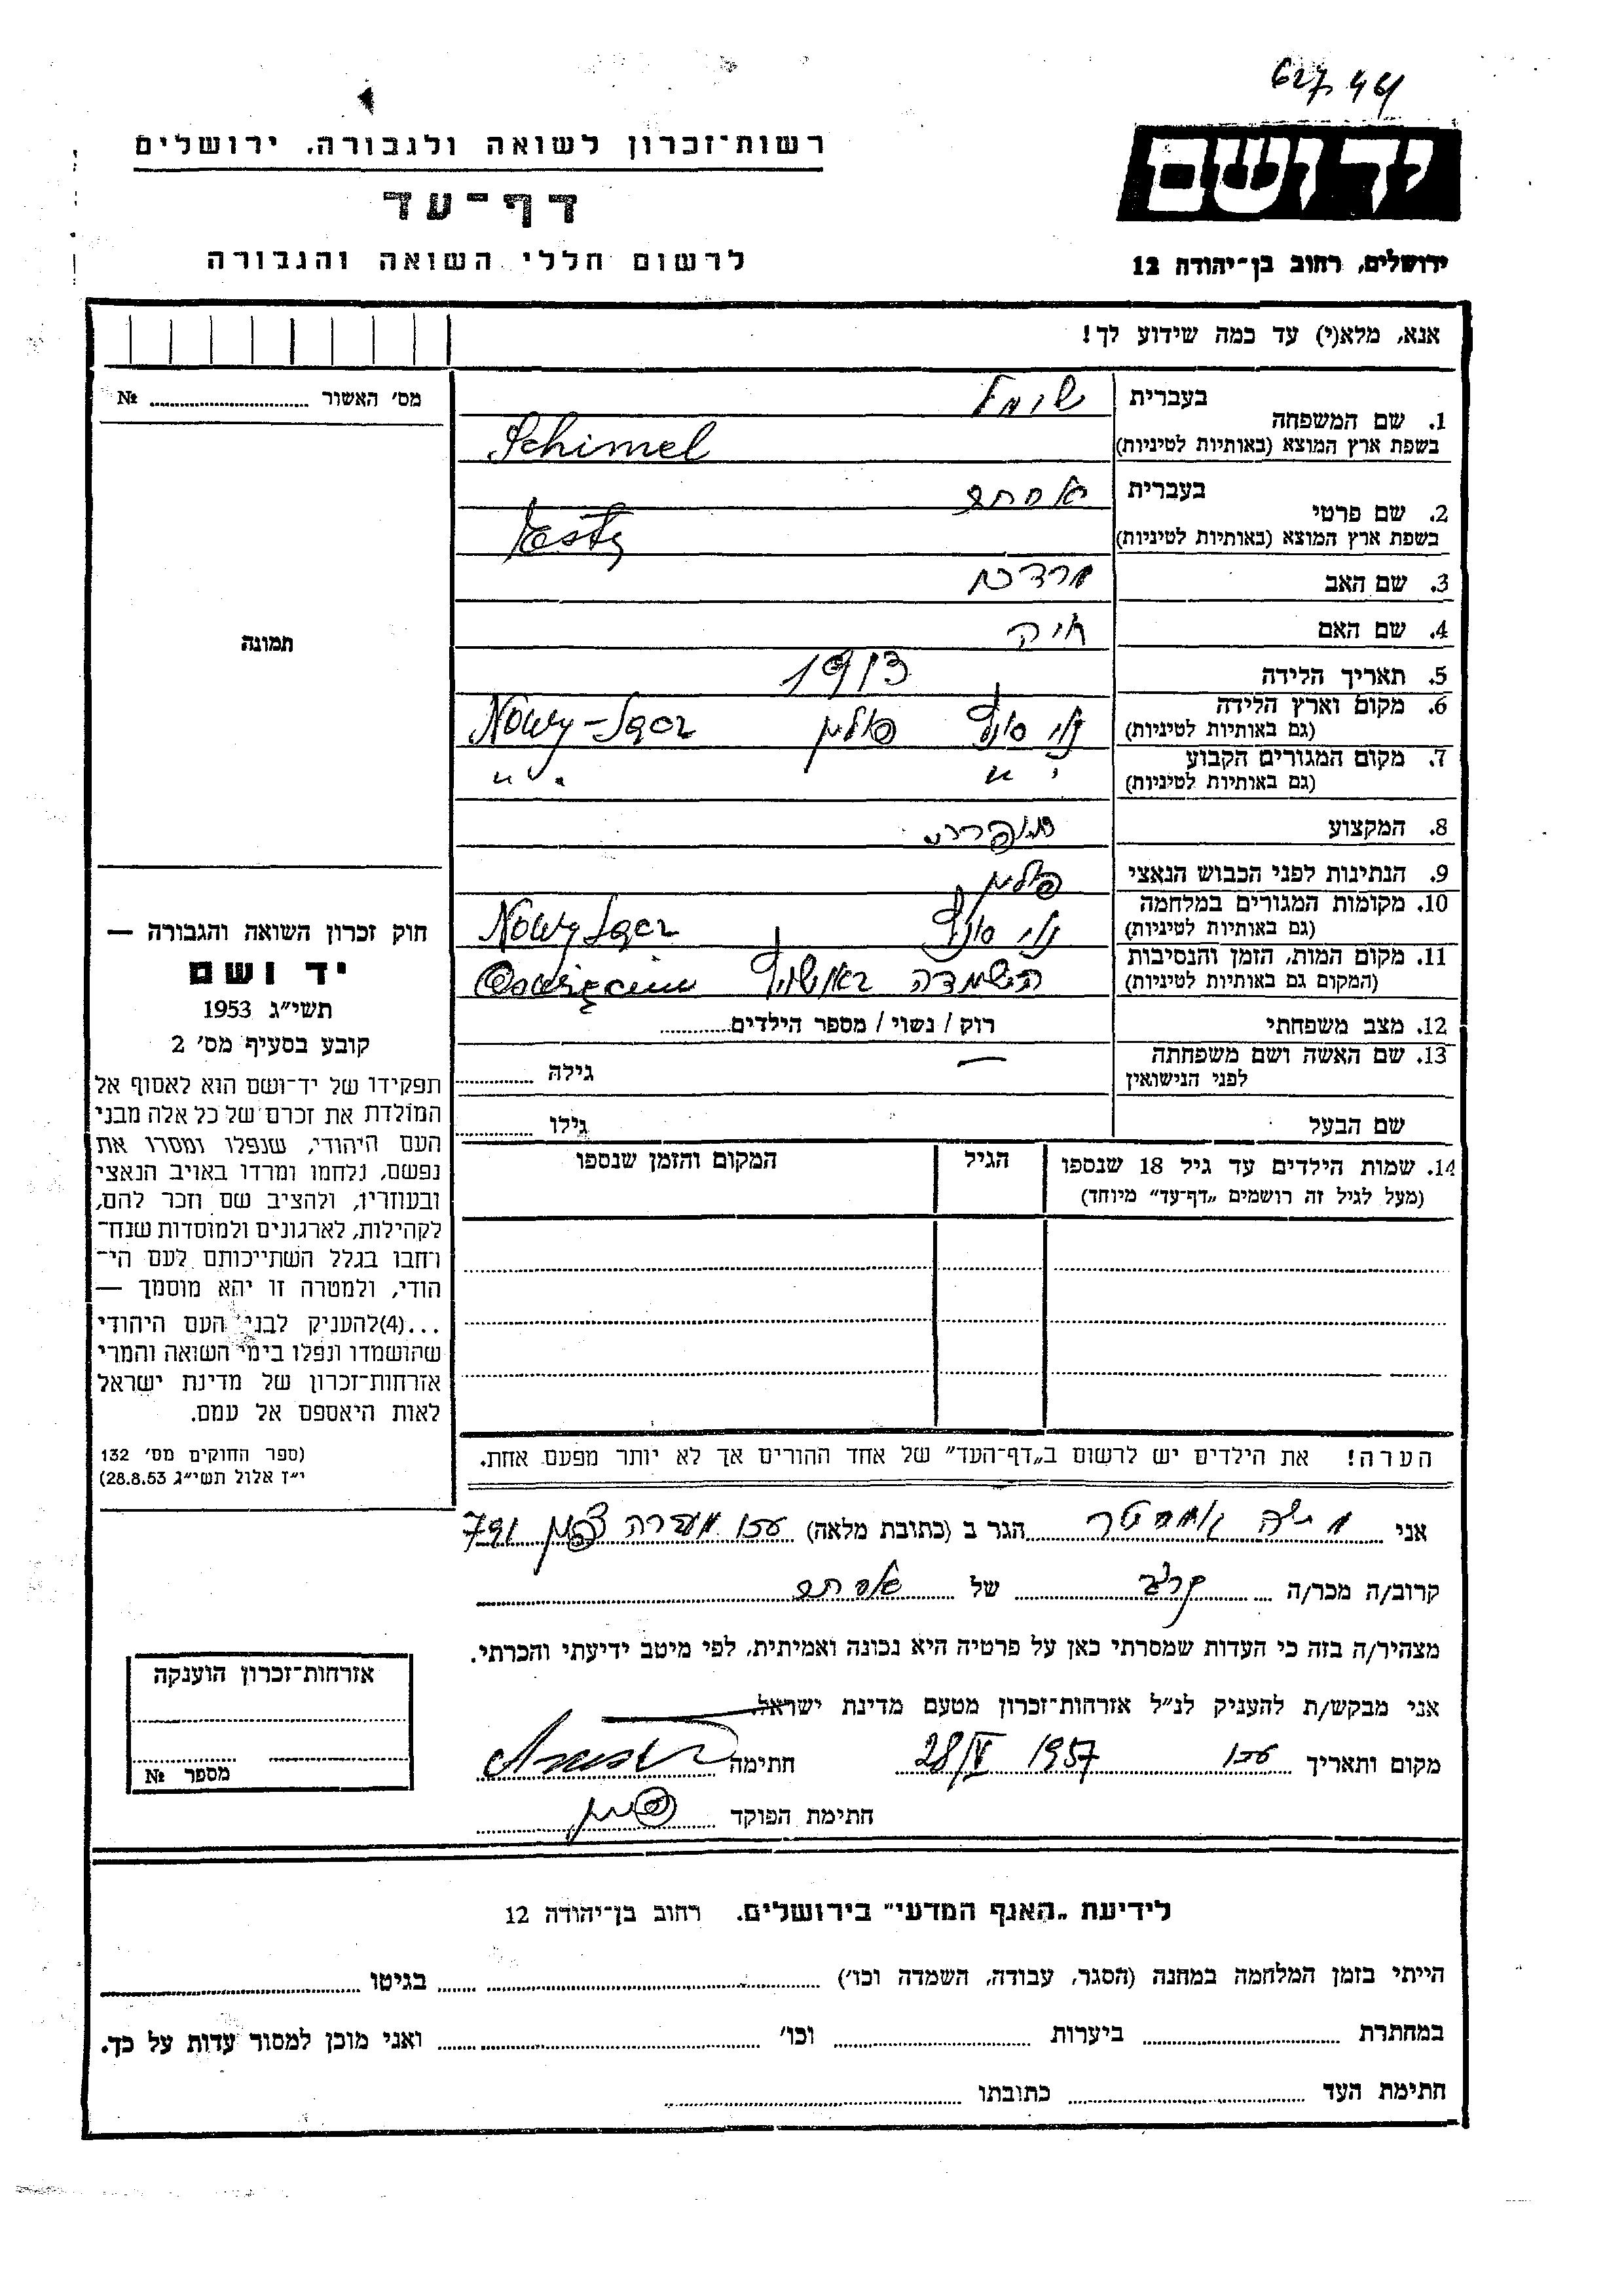 627 44
יד ושם
ירושלים, רחוב בן־יהודה 12
רשות־זכרון לשואה ולגבורה, ירושלים
דף־עד
לרשום חללי השואה והגבורה
אנא, מלא(י) עד כמה שידוע לך!
מס׳ האשור № 
1. שם המשפחה
בעברית שימל
בשפת ארץ המוצא (באותיות לטיניות) Schimel
2. שם פרטי
בעברית אסתר
בשפת ארץ המוצא (באותיות לטיניות) Esty
3. שם האב מרדכי
4. שם האם חיה
5. תאריך הלידה 1913
6. מקום וארץ הלידה נוי סונץ פולין Nowy-Sącz
(גם באותיות לטיניות)
7. מקום המגורים הקבוע " "
(גם באותיות לטיניות)
8. המקצוע
9. הנתינות לפני הכבוש הנאצי פולין
10. מקומות המגורים במלחמה נוי סונץ Nowy Sącz
(גם באותיות לטיניות)
11. מקום המות, הזמן והנסיבות השמדה באושויץ Oświęcim
(המקום גם באותיות לטיניות)
12. מצב משפחתי רוק / נשוי / מספר הילדים
13. שם האשה ושם משפחתה — גילה
לפני הנישואין
שם הבעל גילו
14. שמות הילדים עד גיל 18 שנספו הגיל המקום והזמן שנספו
(מעל לגיל זה רושמים „דף־עד״ מיוחד)
הערה! את הילדים יש לרשום ב„דף־העד״ של אחד ההורים אך לא יותר מפעם אחת.
תמונה
חוק זכרון השואה והגבורה —
יד ושם
תשי״ג 1953
קובע בסעיף מס׳ 2
תפקידו של יד־ושם הוא לאסוף אל
המולדת את זכרם של כל אלה מבני
העם היהודי, שנפלו ומסרו את
נפשם, נלחמו ומרדו באויב הנאצי
ובעוזריו, ולהציב שם וזכר להם,
לקהילות, לארגונים ולמוסדות שנח־
רחבו בגלל השתייכותם לעם הי־
הודי, ולמטרה זו יהא מוסמך —
...(4)להעניק לבני העם היהודי
שהושמדו ונפלו בימי השואה והמרי
אזרחות־זכרון של מדינת ישראל
לאות היאספם אל עמם.
(ספר החוקים מס׳ 132
י״ז אלול תשי״ג 28.8.53)
אני הגר ב (כתובת מלאה) עכו 791
קרוב/ה מכר/ה קרוב של אסתר
מצהיר/ה בזה כי העדות שמסרתי כאן על פרטיה היא נכונה ואמיתית, לפי מיטב ידיעתי והכרתי.
אני מבקש/ת להעניק לנ״ל אזרחות־זכרון מטעם מדינת ישראל.
מקום ותאריך עכו 28/V 1957 חתימה
חתימת הפוקד
אזרחות־זכרון הוענקה
מספר №
לידיעת „האגף המדעי״ בירושלים. רחוב בן־יהודה 12
הייתי בזמן המלחמה במחנה (הסגר, עבודה, השמדה וכו׳) בגיטו
במחתרת ביערות וכו׳ ואני מוכן למסור עדות על כך.
חתימת העד כתובתו